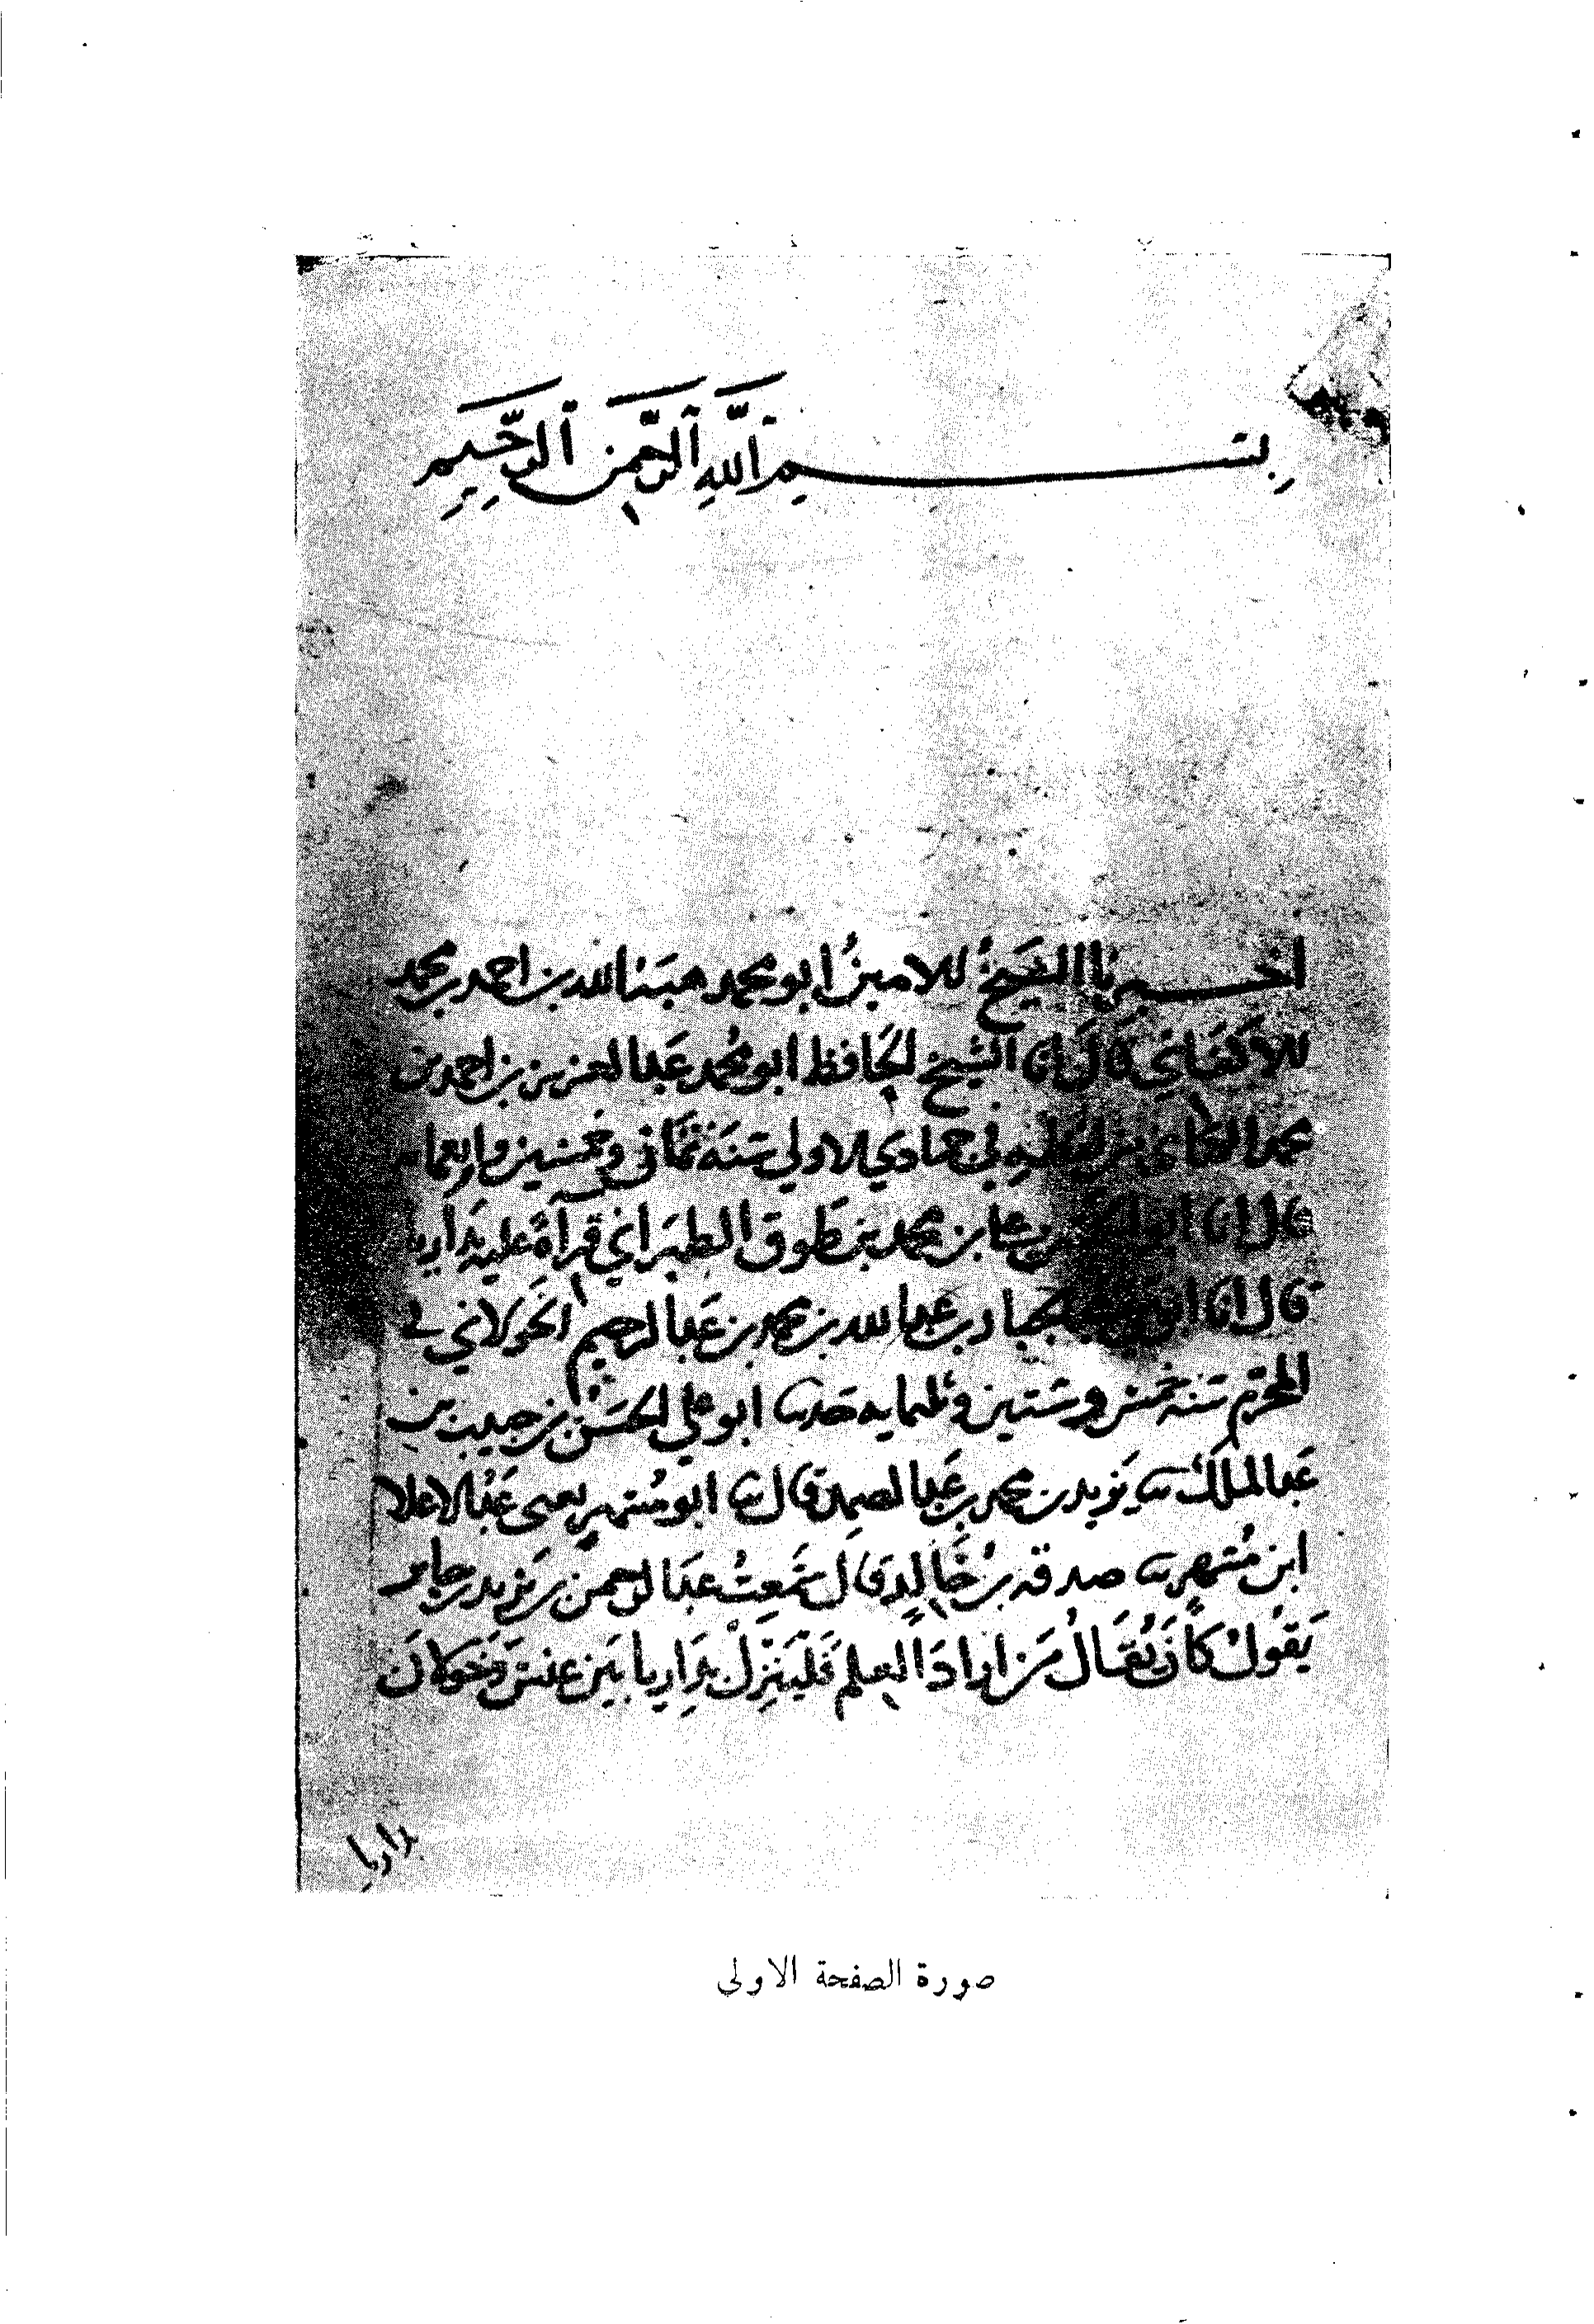 بِسْمِ ٱللَّهِ ٱلرَّحْمنِ ٱلرَّحِيمِ
اخبرنا الشيخ الامين ابو محمد هبة الله بن احمد بن محمد
الاكفاني قال انا الشيخ الحافظ ابو محمد عبد العزيز بن احمد بن
محمد الكتاني في جمادي الاولي سنة ثماني وخمسين واربعمايه
قال انا علي بن محمد بن طوق الطبراني قرآةً عليه بداريا
قال انا عبد الجبار بن عبد الله بن محمد بن عبد الرحيم الخولاني في
المحرم سنة خمس وستين وثلثمايه حدثنا ابو علي الحسن بن حبيب بن
عبد الملك ثنا يزيد بن محمد بن عبد الصمد قال ثنا ابو مسهر يعني عبد الاعلا
ابن مسهر ثنا صدقه بن خالد قال سمعت عبد الرحمن بن يزيد بن جابر
يقول كان يقال من اراد العلم فلينزل بداريا بين عنس وخولان
بداريا
صورة الصفحة الاولى